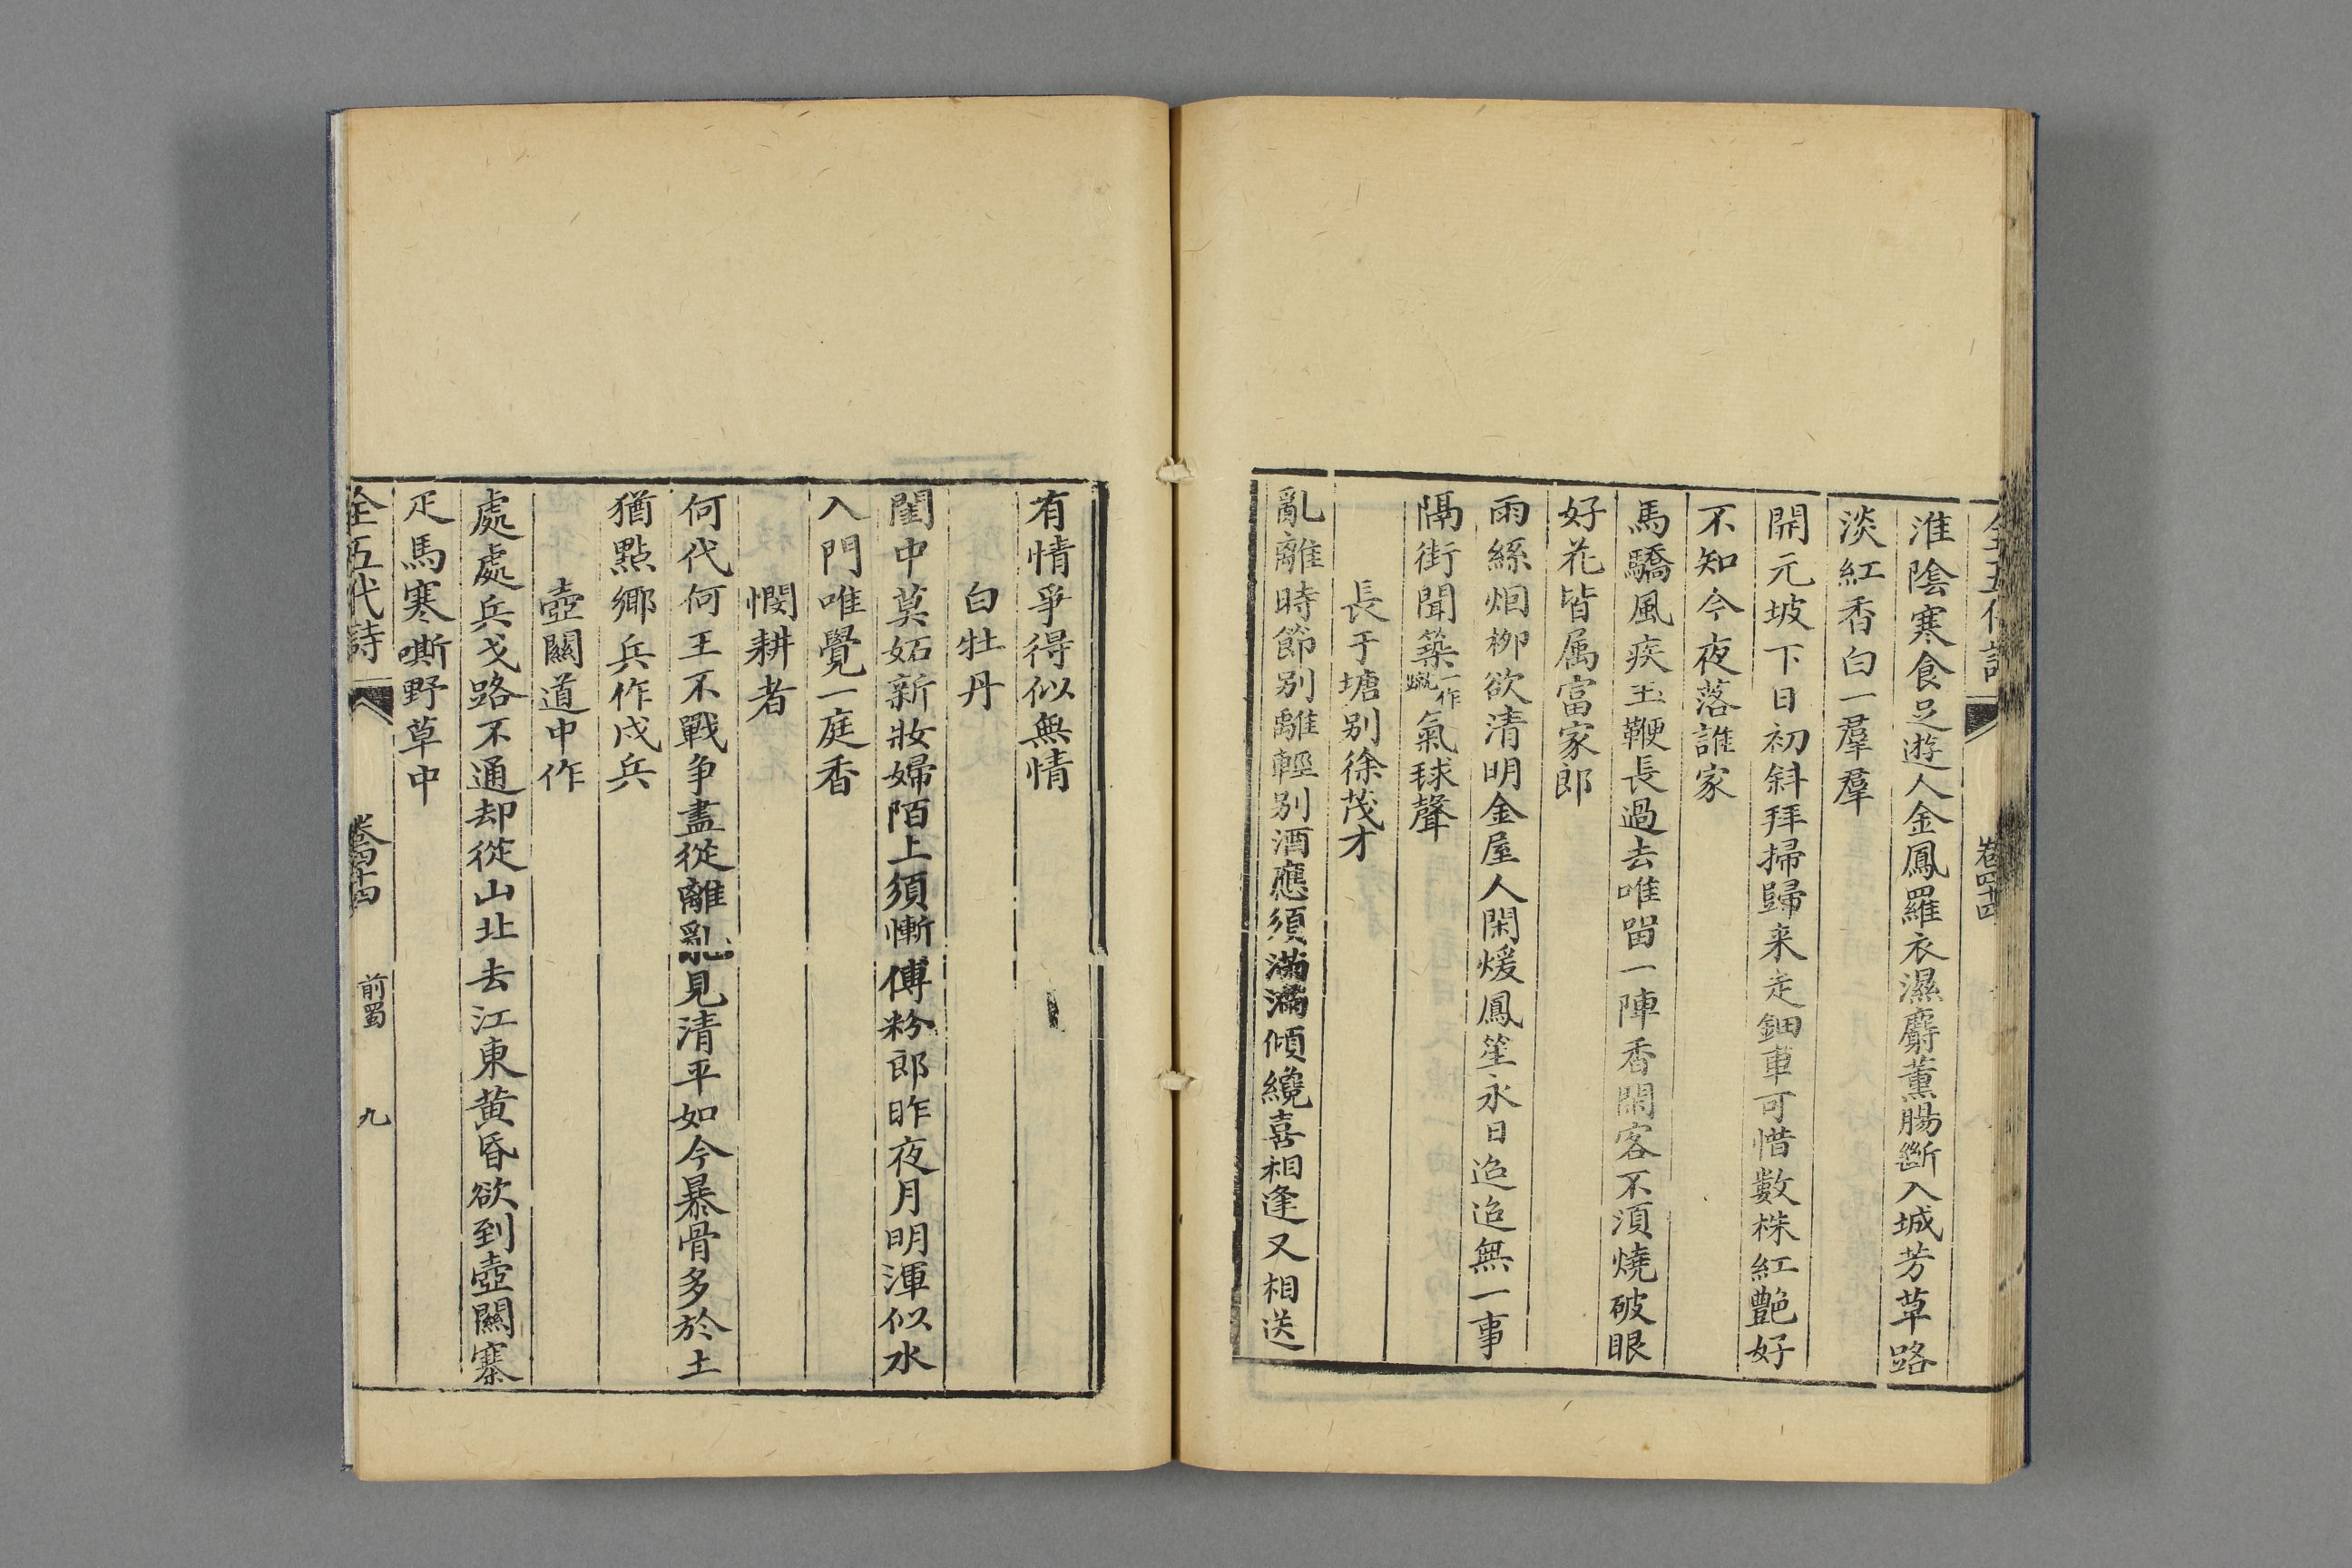 全五代詩 卷四十四
淮陰寒食足遊人金鳳羅衣濕麝薰腸斷入城芳草路
淡紅香白一羣羣
開元坡下日初斜拜掃歸来走鈿車可惜數株紅艷好
不知今夜落誰家
馬驕風疾玉鞭長過去唯留一陣香閑客不須燒破眼
好花皆属富家郎
雨絲烟柳欲清明金屋人閑煖鳳笙永日迢迢無一事
隔街聞築一作蹴氣毬聲
長于塘别徐茂才
亂離時節别離輕别酒應須滿滿傾纔喜相逢又相送
有情爭得似無情
白牡丹
閨中莫妬新妝婦陌上須慚傅粉郎昨夜月明渾似水
入門唯覺一庭香
憫耕者
何代何王不戰争盡從離亂見清平如今暴骨多於土
猶點鄉兵作戍兵
壺關道中作
處處兵戈路不通却從山北去江東黄昏欲到壺關寨
疋馬寒嘶野草中
全五代詩 卷四十四 前蜀 九